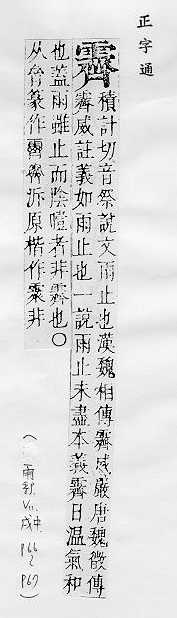 正字通
霽
積計切音祭說文雨止也漢魏相傳霽威嚴唐魏徵傳
霽威註義如雨止也一說雨止未盡本義霽日溫氣和
也蓋雨雖止而陰曀者非霽也〇
从 篆作 泝原楷作 非
(雨部 戌中 P66 P67)